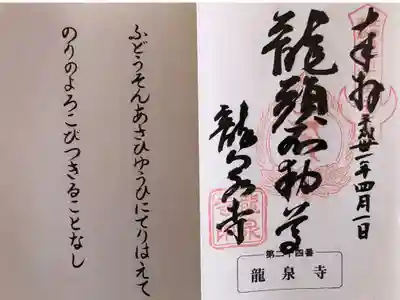 奉拝 平成丗一年四月一日
龍頭不動尊
龍泉寺
第二十四番
龍泉寺
ふどうそんあさひゆうひにてりはえて
のりのよろこびつきることなし